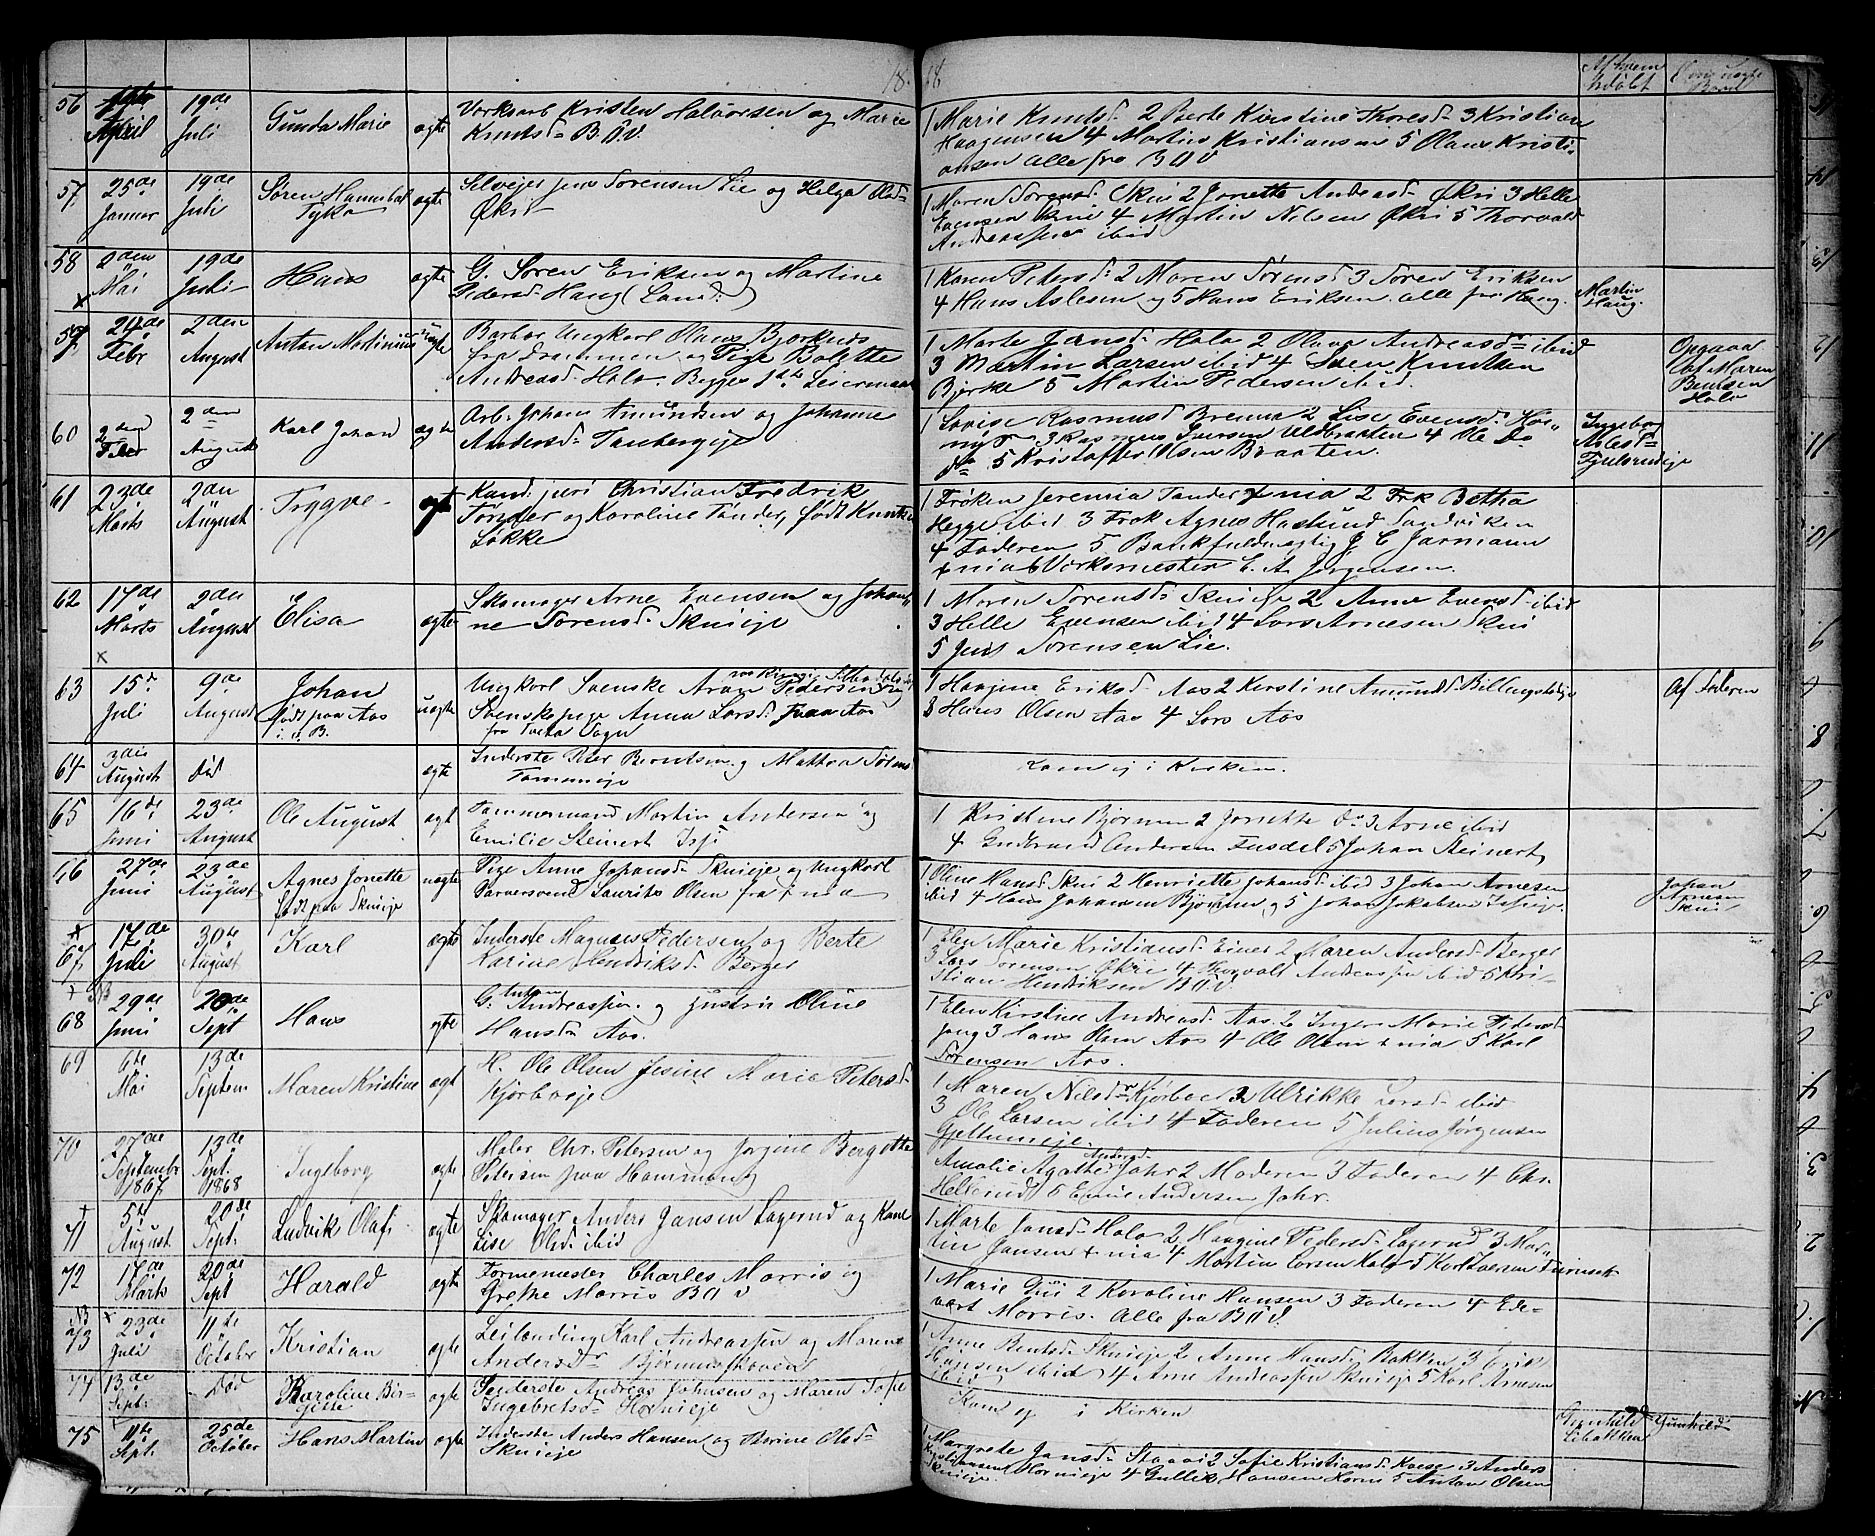 18.
18
Af hvem
hdöbt
56 April 19de Juli Gunda Marie ægte Værksarb Kristen Halvorsen og Marie
Knuts d= B.V.
1 Marie Knutsd. 2 Berte Kirstine Thoresd. 3 Kristian
Haagensen 4 Martin Kristiansen 5 Olaus Kristi-
ansen alle fra B V
57 25de Januar 19de Juli Søren Hannibal ægte Selvejer Jens Sørensen Lie og Helga Olsd=
Økri
1 Maren Sørensd. Skui 2 Jonette Andreasd. Økri 3 Helle
Evensen Skui 4 Martin Nilsen Økri 5 Thorvald
Andreassen ibid
58 2den Mai 19de Juli Hans ægte G. Søren Eriksen og Martine
Pedersd. Haug (Land.)
1 Karen Petersd: 2 Maren Sørensd 3 Søren Eriksen
4 Hans Aslesen og 5 Hans Eriksen. alle fra Haug.
Martin
Haug.
59 24de Febr 2den August Anton Martinius uægte Barber Ungkarl Olaus Bjerknes
fra Drammen og Pige Bolette
Andreasd. Halo. Begges 1ste Leiermaal
1 Marte Jansd. Halo 2 Olava Andreasd= ibid
3 Martin Larsen ibid 4 Sven Knudsen
Bjerke 5 Martin Pedersen ibid.
Opgaaa
Maren
Bentsen
Halo
60 2den Febr 2den August Karl Johan ægte Arb. Johans Amundsen og Johanne
Andersd. Tanbergeje
1 Lovise Rasmusd Brenna 2 Lise Evensd. Hor-
3 Rasmus Iversen Uldbraaten 4 Ole Do
do 5 Kristoffer Olsen Braaten.
Ingeborg
Aslesd=
61 23de Marts 2den August Trygve ægte Kand: juri Christian Fredrik
Tønder og Karoline Tønder, født Knutsen
Løkke
1 Frøken Jeremia Tander Xnia 2 Frk Betha
Hegge ibid 3 Frøk Agnes Haslund Sandviken
4 Faderen 5 Bankfuldmægtig J C Jarmann
Xnia 6 Værksmester E. A. Jørgensen.
62 17de Marts 2den August Elisa ægte Skomager Arne Evensen og Johan-
ne Sørensd. Skuieje
1 Maren Sørensd. Skuieje 2 Anne Evensd. ibid
3 Helle Evensen ibid 4 Lars Arnesen Skui
5 Jens Sørensen Lie.
63 15d Juli 9de August Johan
født paa Aas
i. V. B. uægte Ungkarl Svenske Aron Pedersen
Svenske pige Anna Larsd. fraa Aas
1 Haagine Eriksd Aas 2 Kirstine Amundsd Billingstadeje
3 Hans Olsen Aas 4 Lars Aas
Af Faderen
64 3die August Død ægte Inderste Peter Berntsen og Mathea Sørens
Tanumeje
Kom ej i Kirken.
65 16de Juni 23de August Ole August ægt Tømmermand Martin Andersen og
Emilie Steinert Isi
1 Kristine Bjørum 2 Jonette do 3 Arne ibid
4 Gudbrand Andersen Fusdal 5 Johan Steinert
66 27de Juni 23de August Agnes Jonette
født paa Skuieje uægte Pige Anne Johansd. Skuieje og Ungkarl
Garversvend Laurits Olsen fra Xnia
1 Oline Hansd. Skui 2 Henriette Johansd. ibid 3 Johan Arnesen
ibid 4 Hans Johansen Bjørum og 5 Johan Jakobsen Isieje.
Johan
Arnesen
Skui
67 17de Juli 30te August Karl ægte Inderste Magnus Pedersen og Berte
Karine Hendriksd. Berger
1 Elen Marie Kristiansd. Einer 2 Maren Andersd. Berger
3 Lars Sørensen Økri 4 Thorvald Andreassen ibid 5 Kri-
stian Hendriksen B V
68 29de Juni 20de Sept Hans ægte G. Anton Andreassen og Hustru Oline
Hansd. Aas.
1 Elen Kirstine Andreasd. Aas 2 Inger Marie Pedersd
Haug 3 Hans Olsen Aas 4 Ole Olsen Xnia 5 Karl
Sørensen Aas.
69 6te Mai 13de Septem Maren Kristine ægt H. Ole Olsen Jesine Marie Petersd.
Kjørboeje
1 Maren Nilsd= Kjørbo 2 Ulrikke Larsd. ibid
3 Ole Larsen ibid 4 Faderen 5 Julius Jørgensen
Gjettumeje.
70 27de Septembr 1867. 13de Sept. 1868 Ingeborg ægte Maler Chr. Petersen og Jorgine Bergitte
Petersen paa Hammang
Amalie Agathe Andersd. Jahr 2 Moderen 3 Faderen 4 Chr.
Hellerud 5 Emil Andersen Jahr.
71 5te August 20de Sept. Ludvik Olaf ægte Skomager Anders Jansen Lagerud og Kane
Lise Olsd. ibid
1 Marte Jansd. Halo 2 Haagine Pedersd. Lagerud 3 Mar-
tin Jansen Xnia 4 Martin Larsen Halo 5 Karl Iversen
72 17de Marts 20de Sept Harald ægte Formemester Charles Morris og
Grethe Morris B V
1 Marie 2 Karoline Hansen 3 Faderen 4 Ed-
vart Morris. Alle fra B V.
NB
73 23de Juli 11te October Kristian ægte Leilending Karl Andreassen og Maren
Andersd= Bjørumskoven
1 Anne Berntsd. Skuieje 2 Anne Hansd. Bakken 3 Erik
Hansen ibid 4 Arne Andreassen Skuieje 5 Karl Arnesen
ibid
74 13de Sept. Død Karoline Bir-
gitte ægte Inderste Andreas Johnsen og Maren Sofie
Ingebretsd. Hornieje
Kom ej i Kirken
75 11te Sept. 25de October Hans Martin ægte Inderste Anders Hansen og Karine Olsd=
Skuieje
1 Margrete Jansd. Staavi 2 Sofie Kristiansd. Kaese 3 Anders
Kristiansen Hornieje 4 Gullik Hansen Horni 5 Anton Olsen
Skuieje.
Gunhild
Libakken
Gunhild